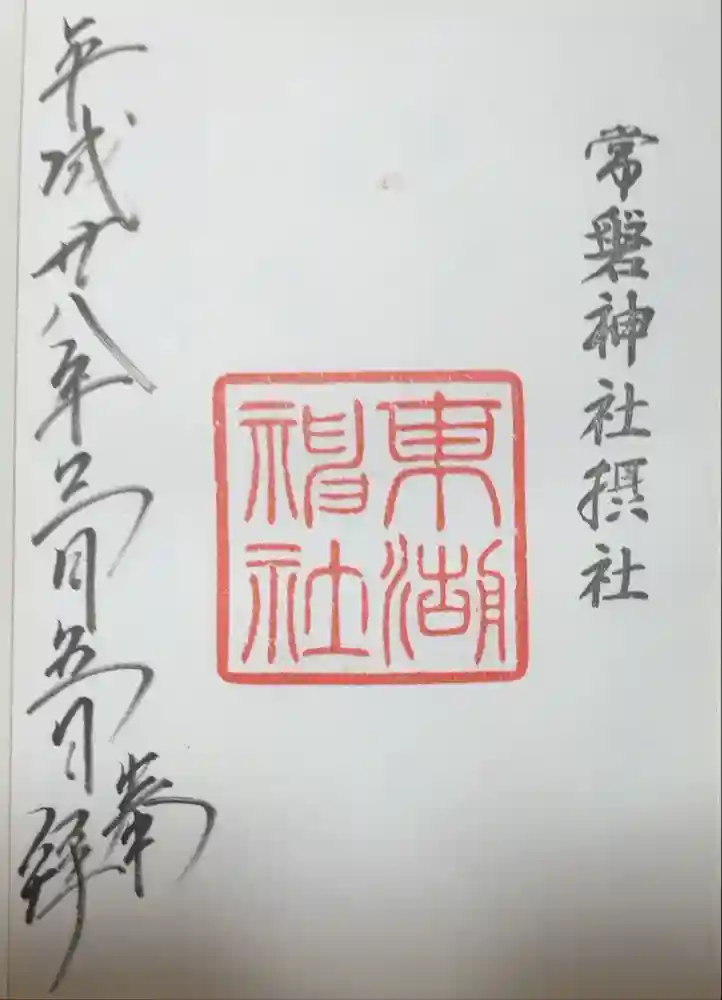 常磐神社摂社
東湖
神社
平成廿八年三月五日
奉拝